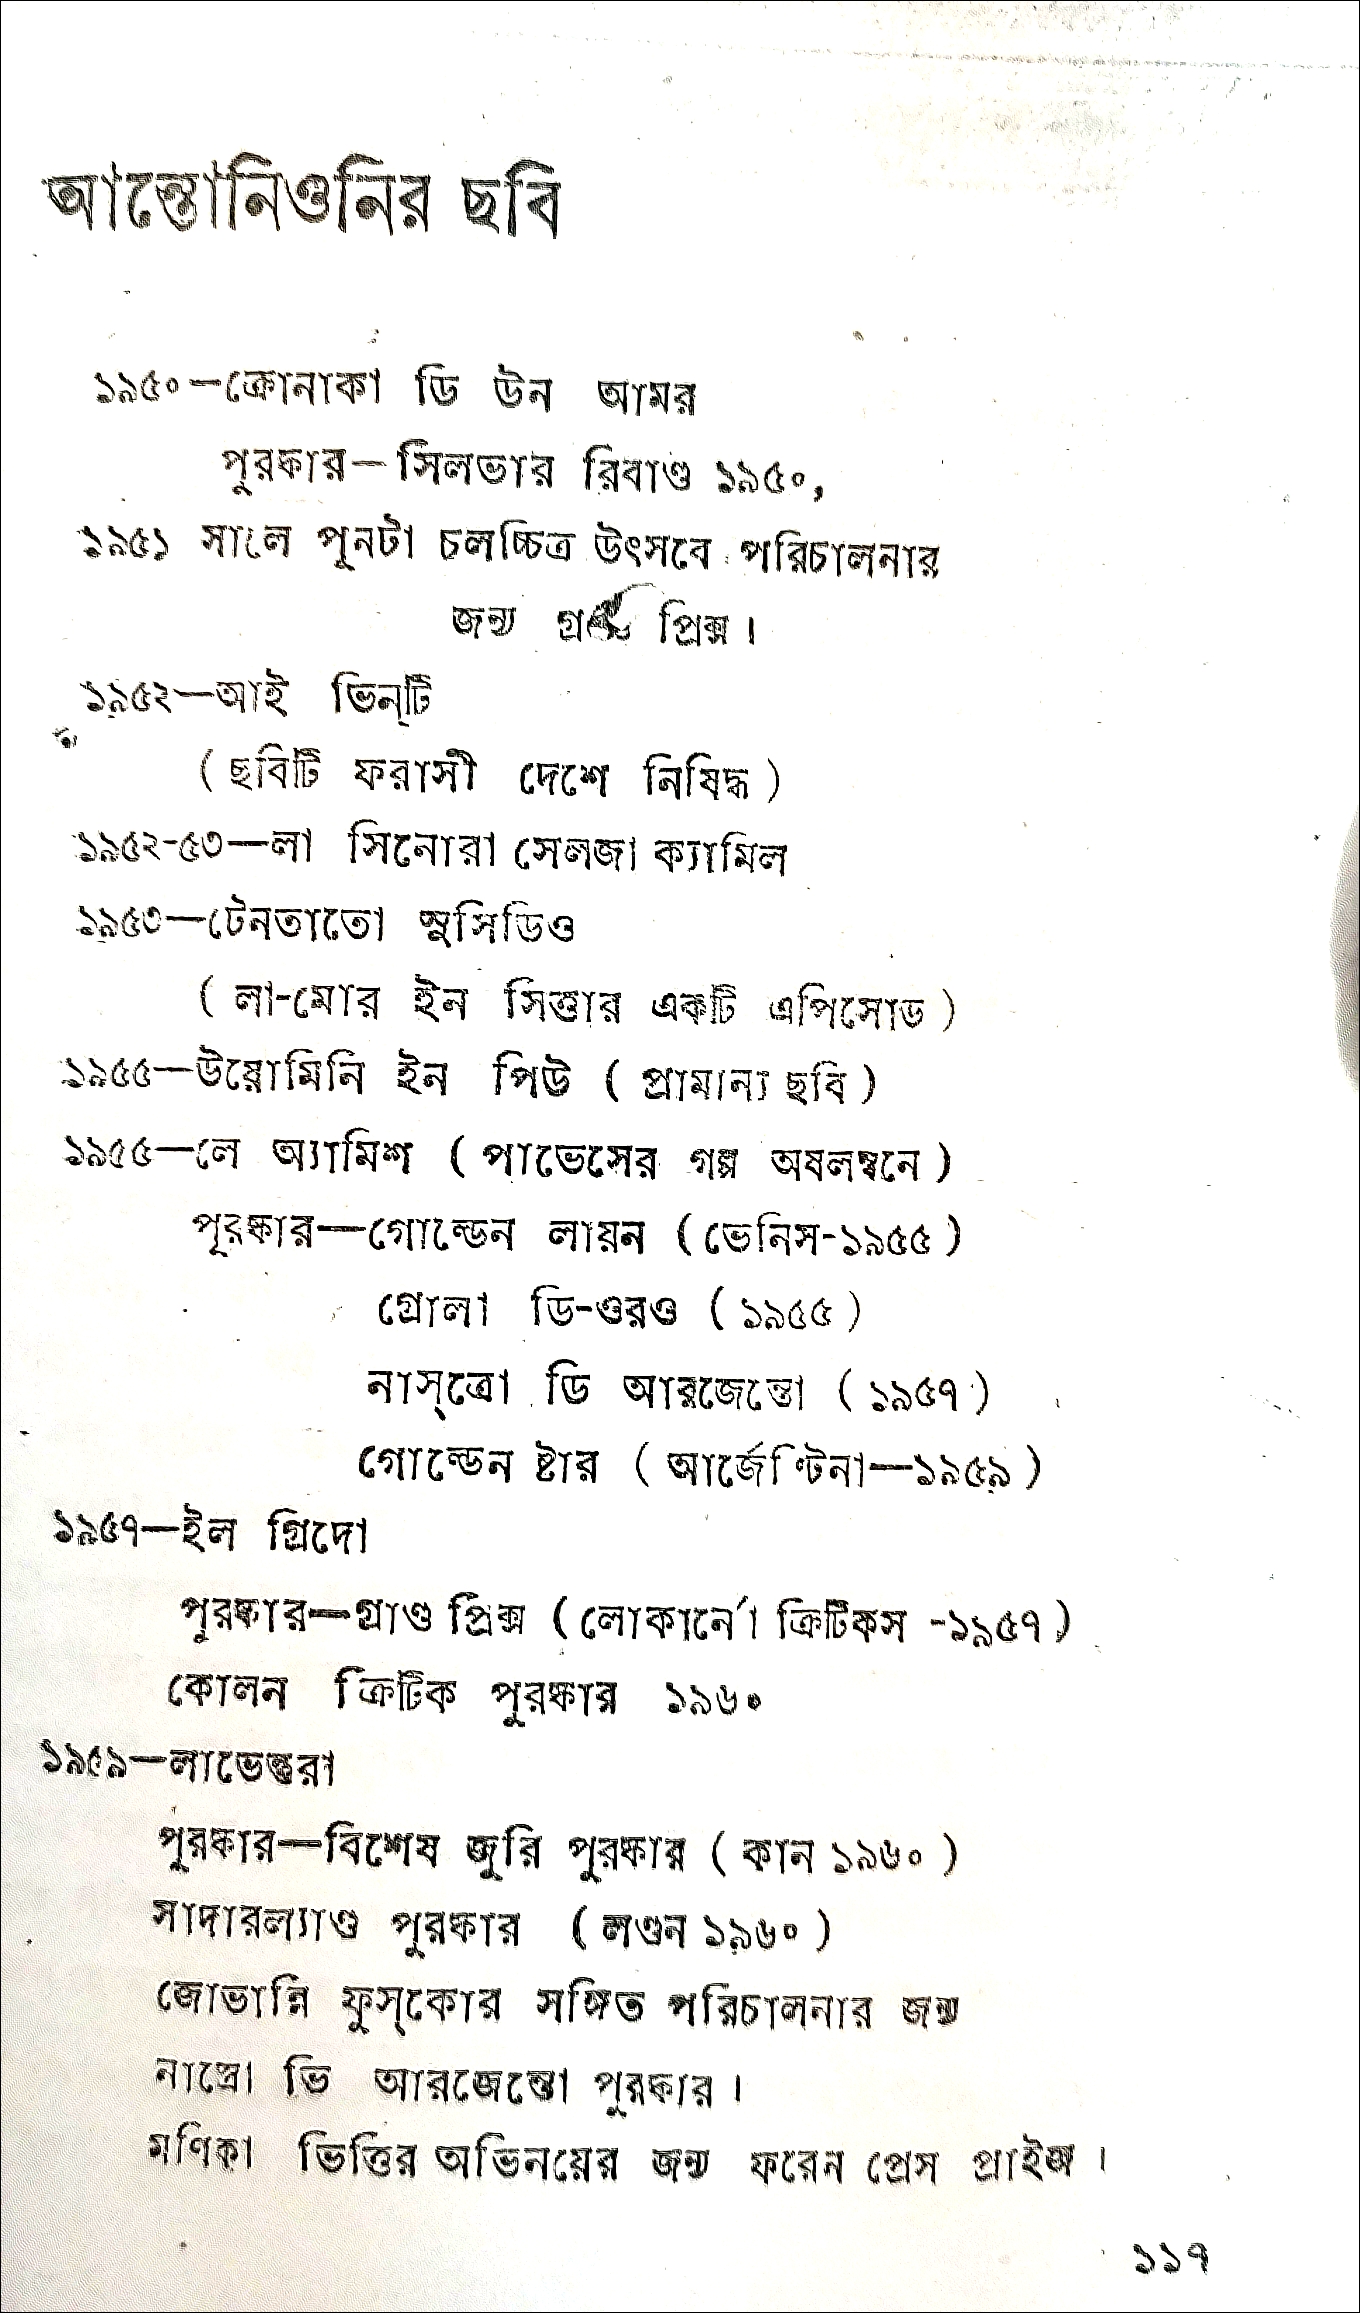 আন্তোনিওনির ছবি
১৯৫০—ক্রোনাকা ডি উন আমর
পুরষ্কার—সিলভার রিবাণ্ড ১৯৫০,
১৯৫১ সালে পুনটা চলচ্চিত্র উৎসবে পরিচালনার
জন্য প্রিক্স।
১৯৫২—আই ভিন্‌টি
( ছবিটি ফরাসী দেশে নিষিদ্ধ )
১৯৫২-৫৩—লা সিনোরা সেলজা ক্যামিল
১৯৫৩—টেনতাতো স্মুসিডিও
( লা-মোর ইন সিত্তার একটি এপিসোড )
১৯৫৫—উয়োমিনি ইন পিউ ( প্রামান্য ছবি )
১৯৫৫—লে অ্যামিশ ( পাভেসের গল্প অষলম্বনে )
পূরষ্কার—গোল্ডেন লায়ন ( ভেনিস-১৯৫৫ )
গ্রোলা ডি-ওরও ( ১৯৫৫ )
নাস্‌ত্রো ডি আরজেন্তো ( ১৯৫৭ )
গোল্ডেন ষ্টার ( আর্জেণ্টিনা—১৯৫৯ )
১৯৫৭—ইল গ্রিদো
পুরষ্কার—গ্রাণ্ড প্রিক্স ( লোকার্নো ক্রিটিকস -১৯৫৭ )
কোলন ক্রিটিক পুরষ্কার ১৯৬০
১৯৫৯—লাভেন্তুরা
পুরষ্কার—বিশেষ জুরি পুরষ্কার ( কান ১৯৬০ )
সাদারল্যাণ্ড পুরষ্কার ( লণ্ডন ১৯৬০ )
জোভান্নি ফুস্‌কোর সঙ্গিত পরিচালনার জন্য
নাস্ত্রো ভি আরজেন্তো পুরষ্কার।
মণিকা ভিত্তির অভিনয়ের জন্য ফরেন প্রেস প্রাইজ।
১১৭